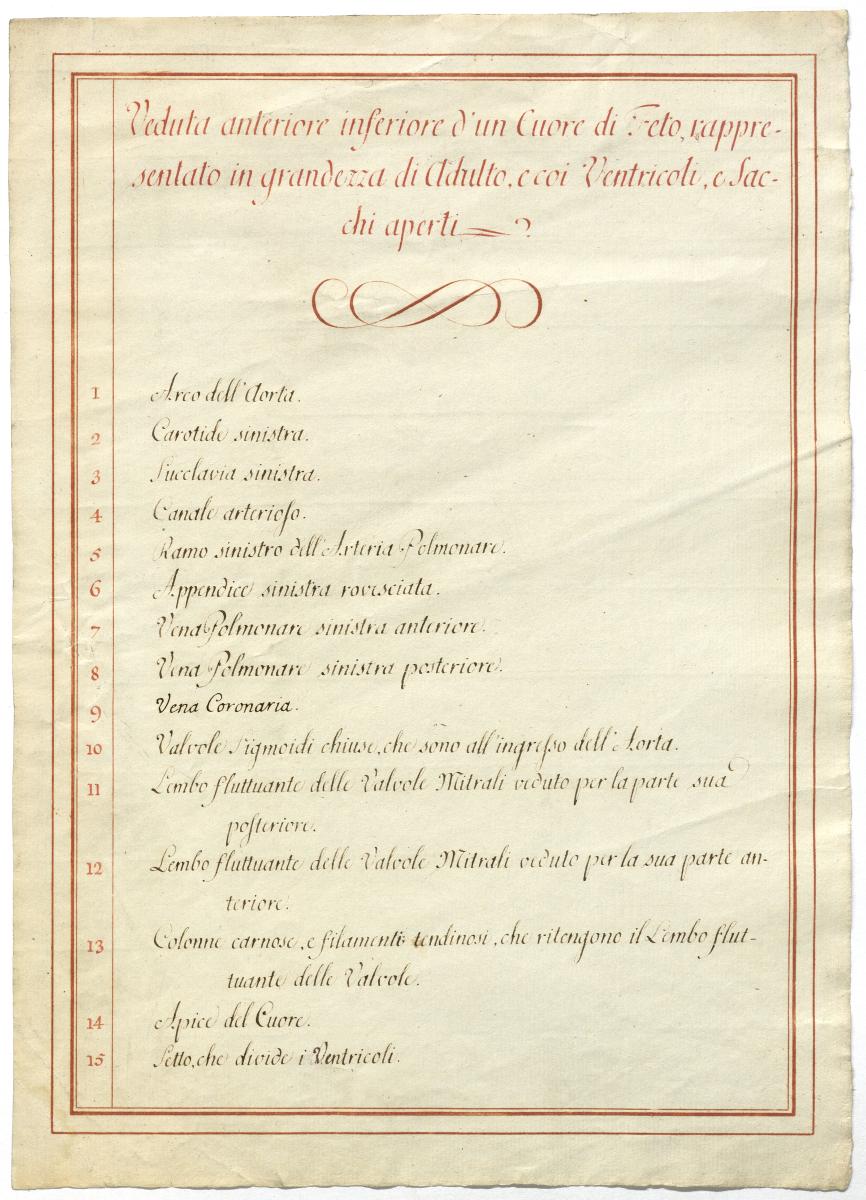 Veduta anteriore inferiore d'un Cuore di Feto, rappre-
sentato in grandezza di Adulto, e coi Ventricoli, e Sac-
chi aperti
1 Arco dell'Aorta.
2 Carotide sinistra.
3 Succlavia sinistra.
4 Canale arterioso.
5 Ramo sinistro dell'Arteria Polmonare.
6 Appendice sinistra rovesciata.
7 Vena Polmonare sinistra anteriore.
8 Vena Polmonare sinistra posteriore.
9 Vena Coronaria.
10 Valvole Sigmoidi chiuse, che sono all'ingresso dell'Aorta.
11 Lembo fluttuante delle Valvole Mitrali veduto per la parte sua
posteriore.
12 Lembo fluttuante delle Valvole Mitrali veduto per la sua parte an-
teriore.
13 Colonne carnose, e filamenti tendinosi, che ritengono il Lembo flut-
tuante delle Valvole.
14 Apice del Cuore.
15 Setto, che divide i Ventricoli.